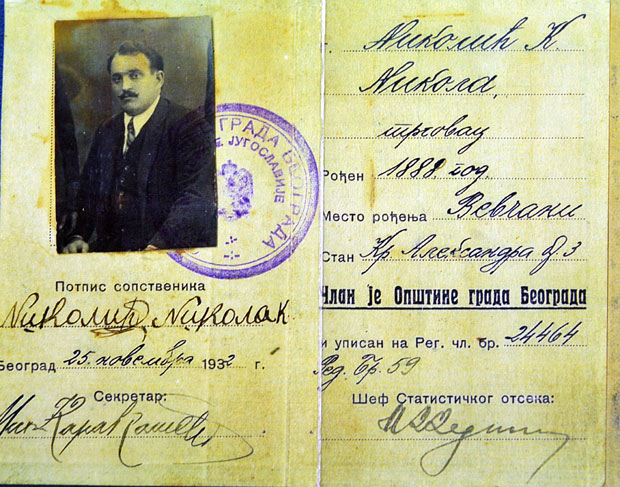 ГРАДА БЕОГРАДА
ЈУГОСЛАВИЈЕ
Потпис сопственика
Николић Николак
Београд 25. новембра 1932 г.
Секретар:
Николић К.
Никола,
трговац
Рођен 1888. год.
Место рођења Вевчани
Стан Кр. Александра б. 3
Члан је Општине града Београда
и уписан на Рег. чл. бр. 24464
Ред. Бр. 59
Шеф Статистичког отсека: